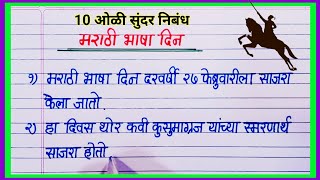 10 ओळी सुंदर निबंध
मराठी भाषा दिन
१) मराठी भाषा दिन दरवर्षी २७ फेब्रुवारीला साजरा
केला जातो.
२) हा दिवस थोर कवी कुसुमाग्रज यांच्या स्मरणार्थ
साजरा होतो.